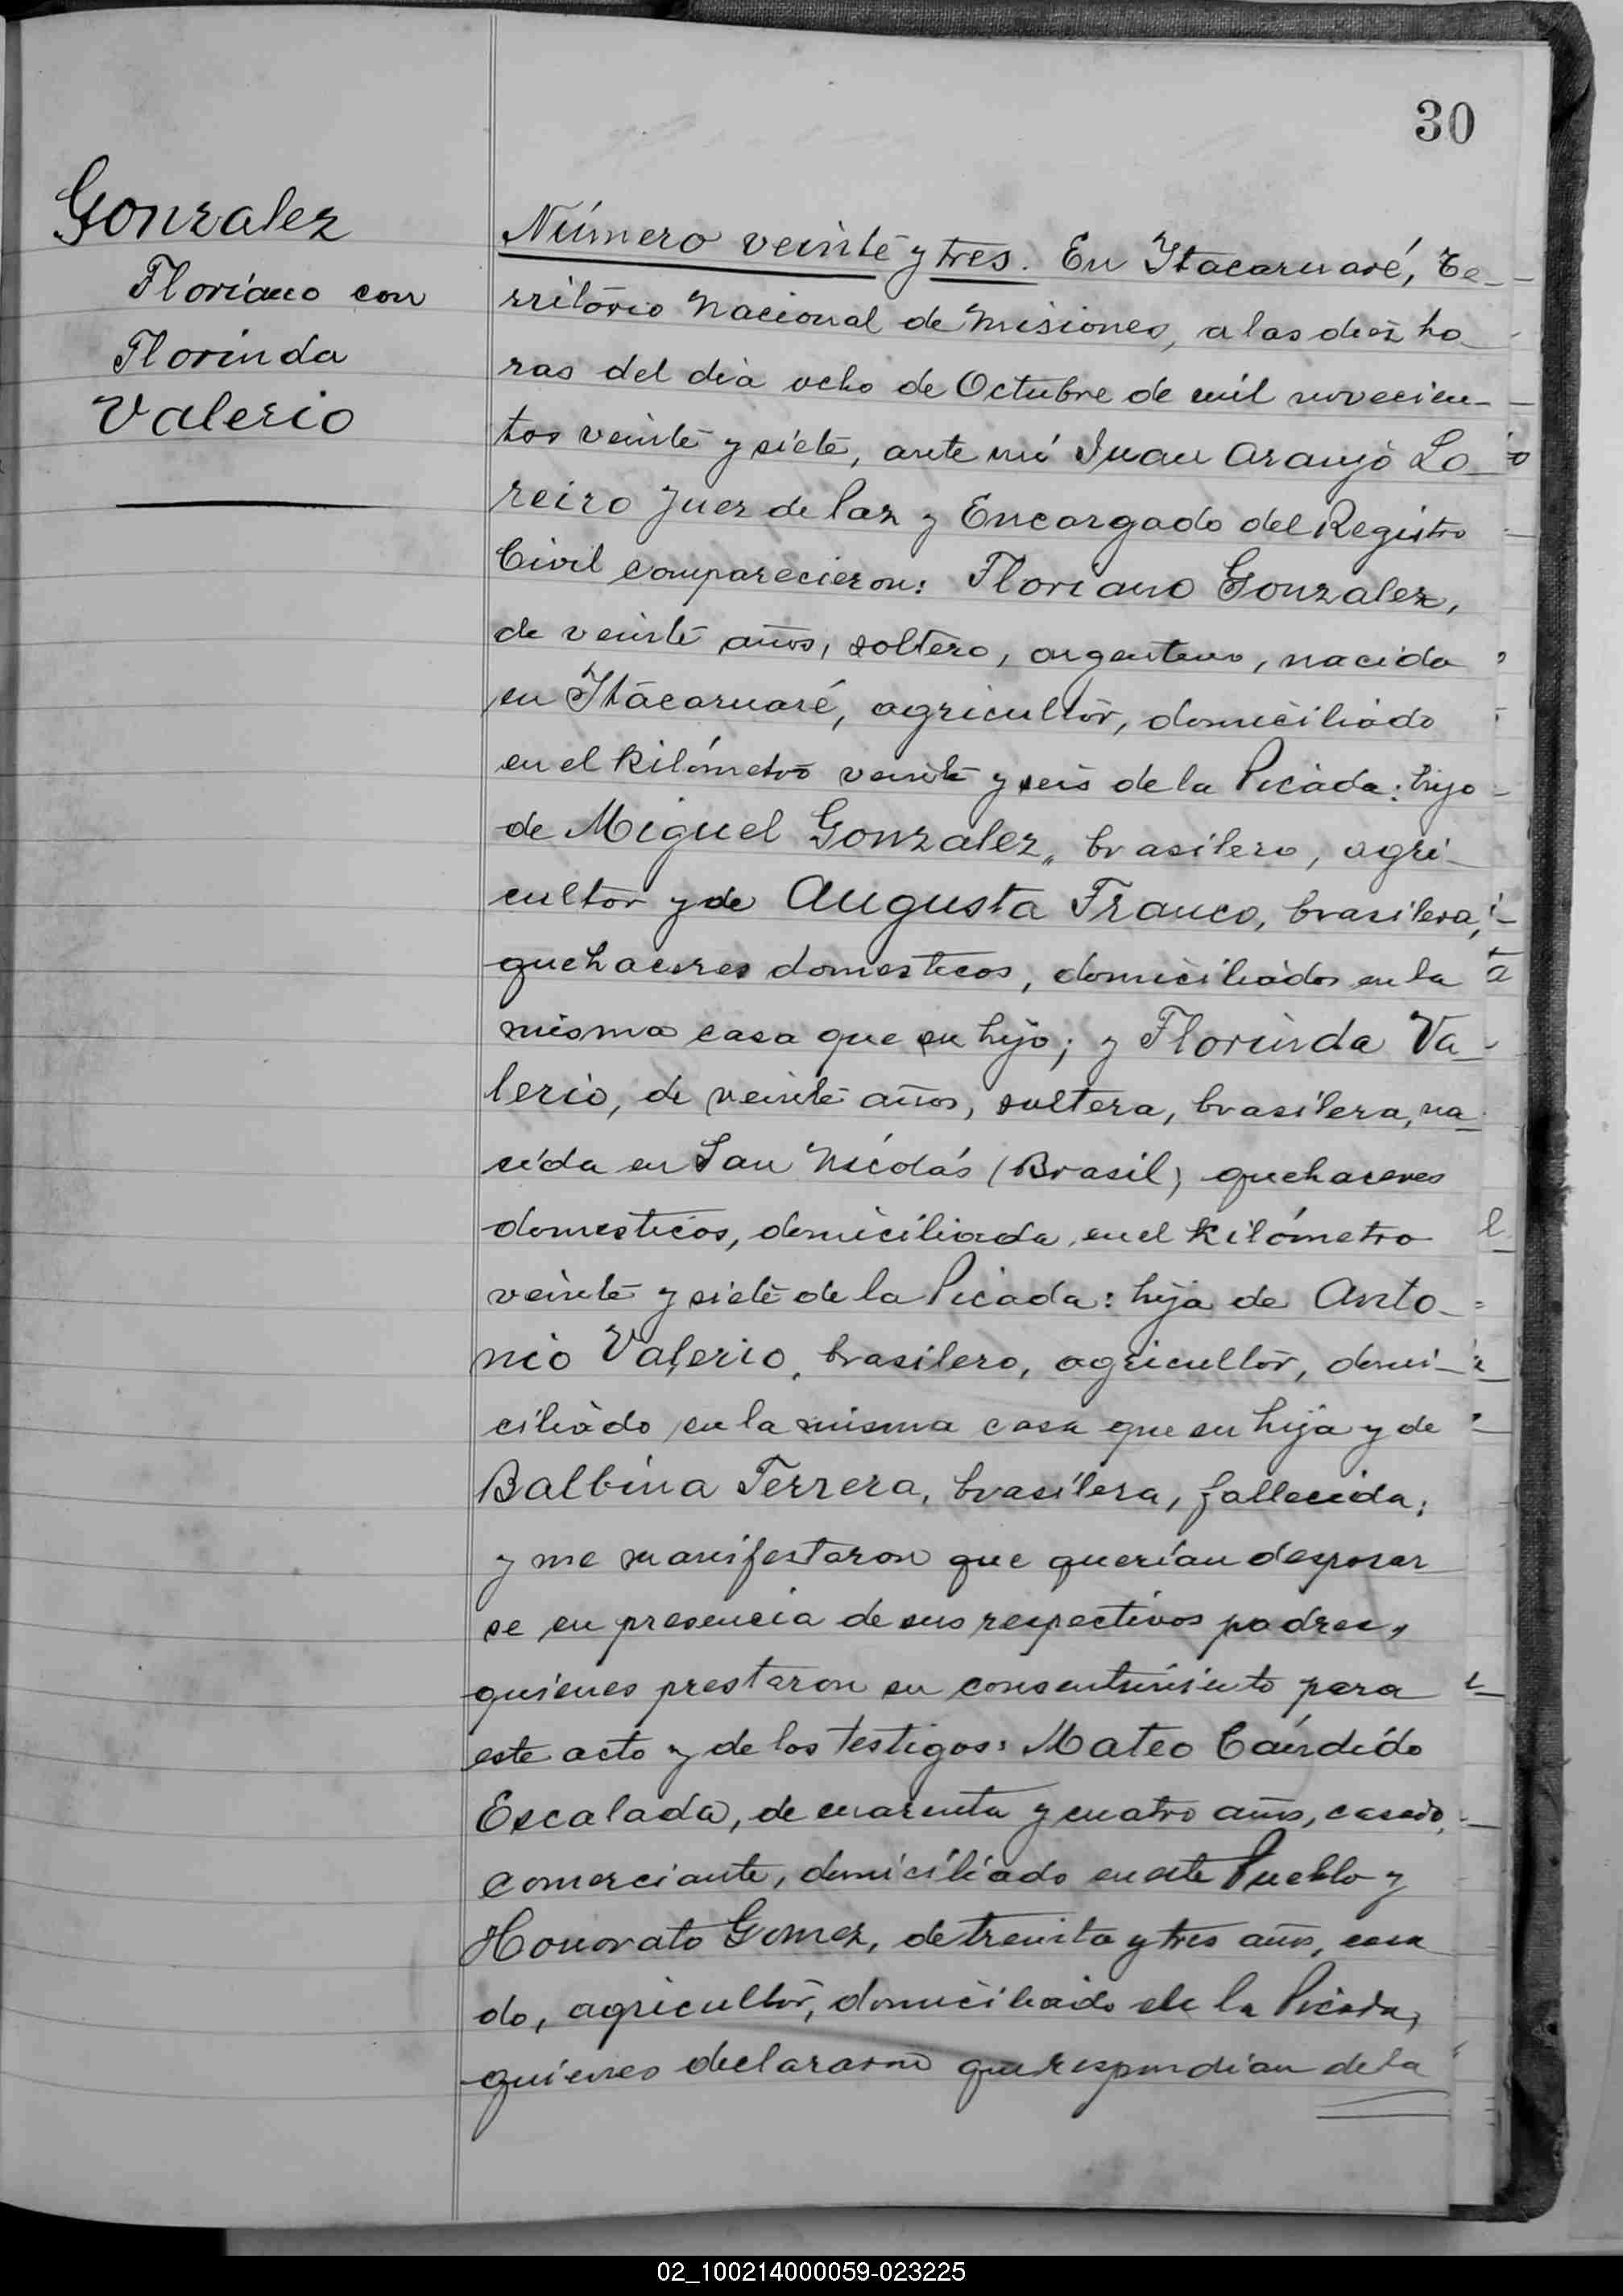 30
Gonzalez
Floriano con
Florinda
Valerio
Número veinte y tres. En Itacaruaré, Te-
rritorio Nacional de Misiones, a las diez ho-
ras del dia ocho de Octubre de mil novecien-
tos veinte y siete, ante mi Juan Araujo Lo-
reiro Juez de Paz y Encargado del Registro
Civil comparecieron: Floriano Gonzalez,
de veinte años, soltero, argentino, nacido
en Itacaruaré, agricultor, domiciliado
en el kilómetro veinte y seis de la Picada: hijo
de Miguel Gonzalez, brasilero, agri-
cultor y de Augusta Franco, brasilera,
quehaceres domesticos, domiciliados en la
misma casa que su hijo; y Florinda Va-
lerio, de veinte años, soltera, brasilera, na-
cida en San Nicolás (Brasil) quehaceres
domesticos, domiciliada en el kilómetro
veinte y siete de la Picada: hija de Anto-
nio Valerio, brasilero, agricultor, domi-
ciliado en la misma casa que su hija y de
Balbina Ferrera, brasilera, fallecida;
y me manifestaron que querían desposar
se en presencia de sus respectivos padres,
quienes prestaron su consentimiento para
este acto y de los testigos: Mateo Cándido
Escalada, de cuarenta y cuatro años, casado,
comerciante, domiciliado en este Pueblo y
Honorato Gomez, de treinta y tres años, casa
do, agricultor, domiciliado de la Picada,
quienes declararon que respondian de la
02_100214000059-023225